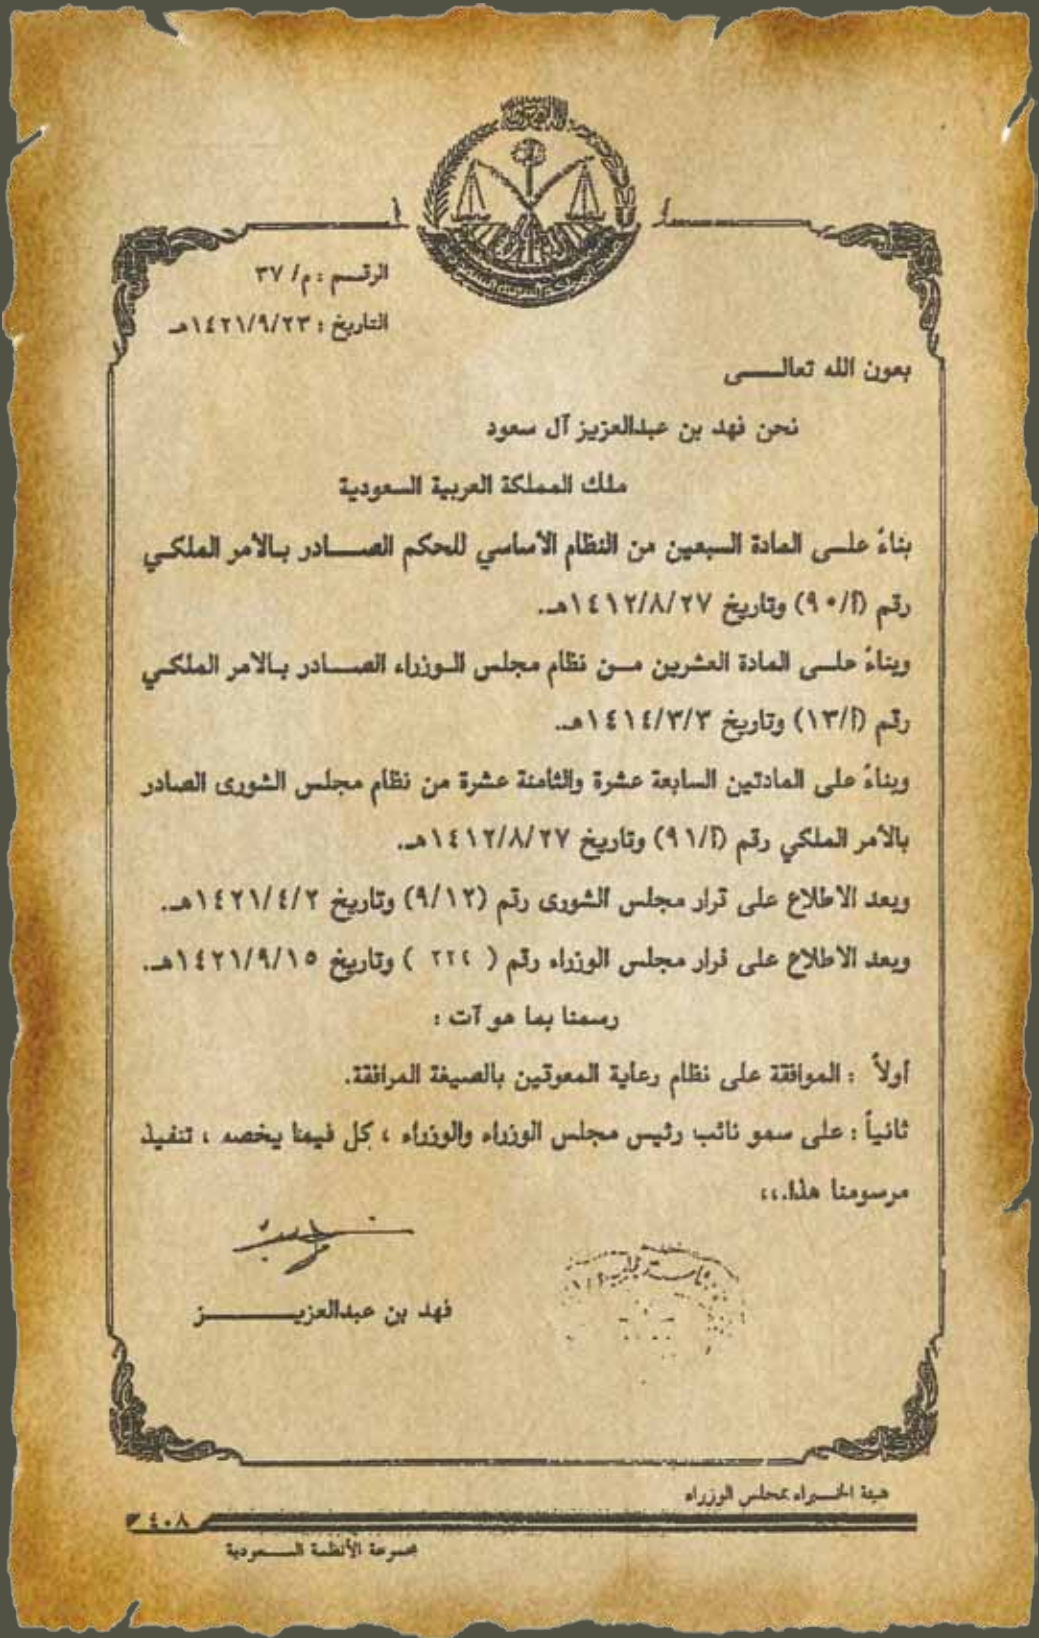 الرقم : م/ ٣٧
التاريخ : ١٤٢١/٩/٢٣هـ
بعون الله تعالى
نحن فهد بن عبدالعزيز آل سعود
ملك المملكة العربية السعودية
بناءً على المادة السبعين من النظام الأساسي للحكم الصادر بالأمر الملكي
رقم (أ/٩٠) وتاريخ ١٤١٢/٨/٢٧هـ.
وبناءً على المادة العشرين من نظام مجلس الوزراء الصادر بالأمر الملكي
رقم (أ/١٣) وتاريخ ١٤١٤/٣/٣هـ.
وبناءً على المادتين السابعة عشرة والثامنة عشرة من نظام مجلس الشورى الصادر
بالأمر الملكي رقم (أ/٩١) وتاريخ ١٤١٢/٨/٢٧هـ.
وبعد الاطلاع على قرار مجلس الشورى رقم (٩/١٢) وتاريخ ١٤٢١/٤/٢هـ.
وبعد الاطلاع على قرار مجلس الوزراء رقم ( ٢٢٤ ) وتاريخ ١٤٢١/٩/١٥هـ.
رسمنا بما هو آت :
أولاً : الموافقة على نظام رعاية المعوقين بالصيغة المرافقة.
ثانياً : على سمو نائب رئيس مجلس الوزراء والوزراء ، كل فيما يخصه ، تنفيذ
مرسومنا هذا.،،
فهد بن عبدالعزيز
هيئة الخبراء بمجلس الوزراء
٤٠٨
مجموعة الأنظمة السعودية